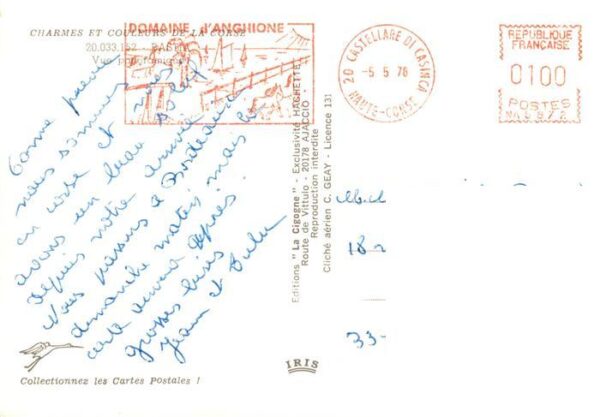 CHARMES ET COULEURS DE LA CORSE
20.033.152 - BASTIA
Vue panoramique
DOMAINE d'ANGHIONE
20 CASTELLARE DI CASINCA
-5 5 78
HAUTE-CORSE
REPUBLIQUE
FRANCAISE
0100
POSTES
Comme prévu
nous sommes
en corse et nous
avons un beau soleil
depuis notre arrivée
Nous passons à Bordeaux
dimanche matin mais la
carte arrivera après.
grosses bises
Jean et
Editions "La Cigogne" - Exclusivité HACHETTE
Route de Vittulo - 20178 AJACCIO
Reproduction interdite
Cliché aérien C. GEAY - Licence 131
18
33-
IRIS
Collectionnez les Cartes Postales !